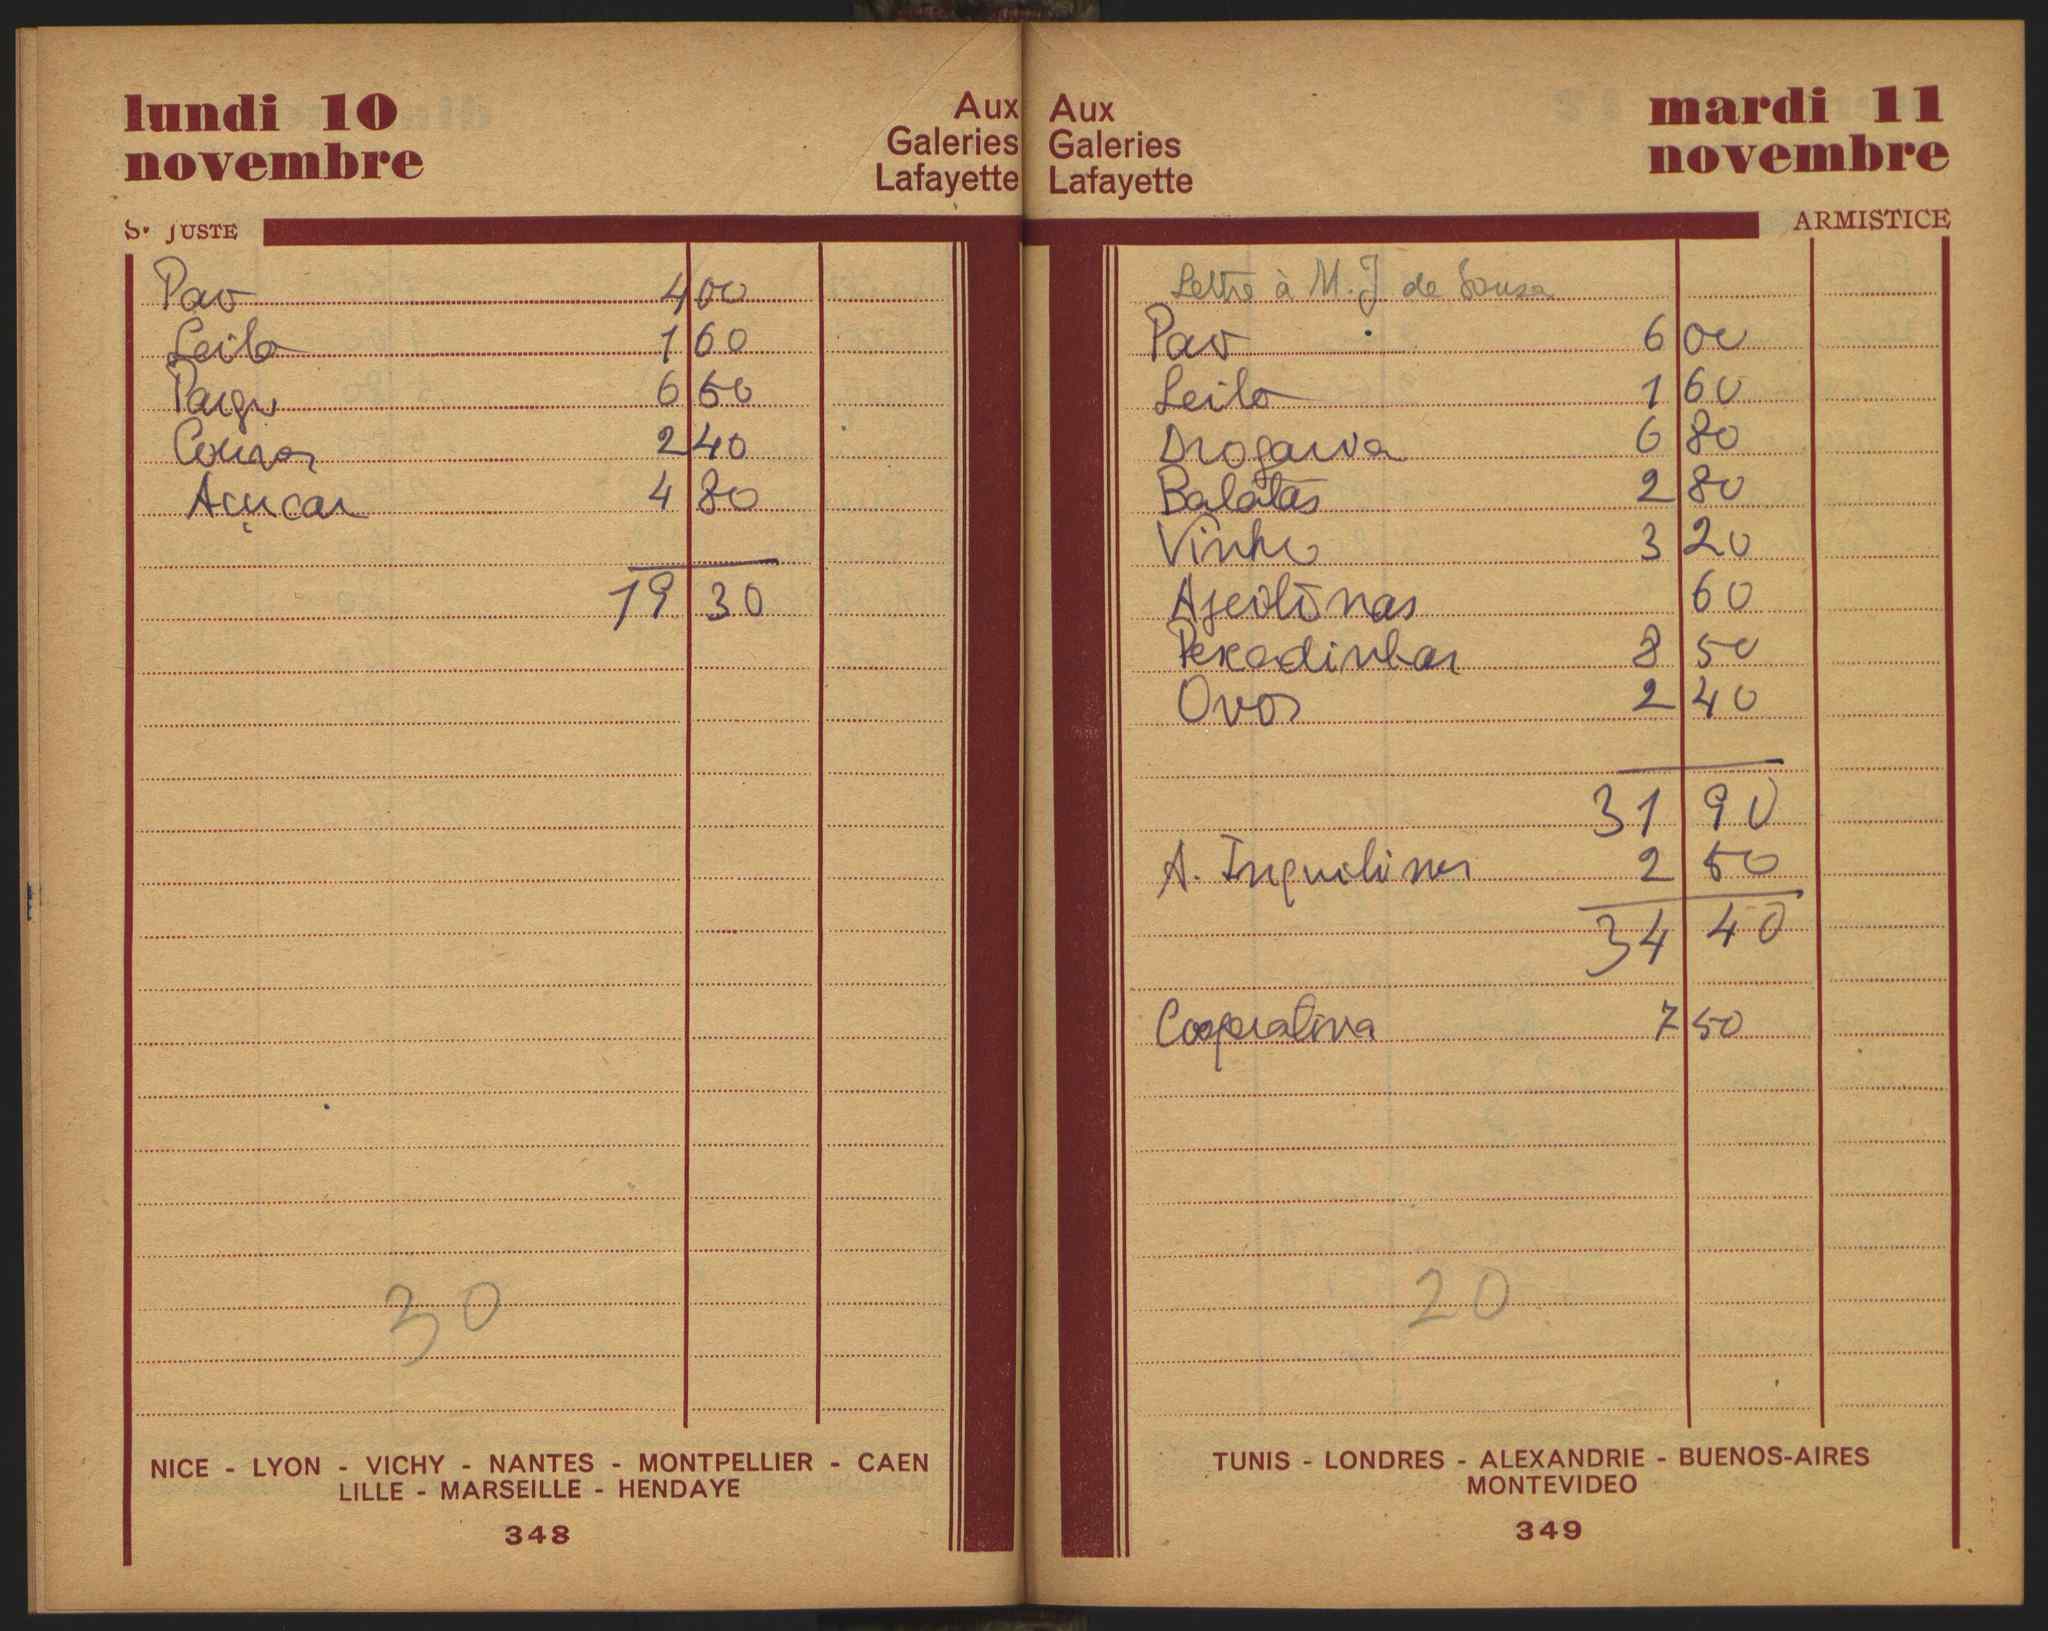 lundi 10
novembre
Aux
Galeries
Lafayette
Sᵉ JUSTE
Pão 4 00
Leite 1 60
Paigu 6 50
Couves 2 40
Açucar 4 80
19 30
30
NICE - LYON - VICHY - NANTES - MONTPELLIER - CAEN
LILLE - MARSEILLE - HENDAYE
348
Aux
Galeries
Lafayette
mardi 11
novembre
ARMISTICE
Lettre à M. J de Sousa
Pão 6 00
Leite 1 60
Drogaria 6 80
Batatas 2 80
Vinho 3 20
Azeitonas 60
Pexadinhas 8 50
Ovos 2 40
31 90
A. Inquilinos 2 50
34 40
Cooperativa 7 50
20
TUNIS - LONDRES - ALEXANDRIE - BUENOS-AIRES
MONTEVIDEO
349